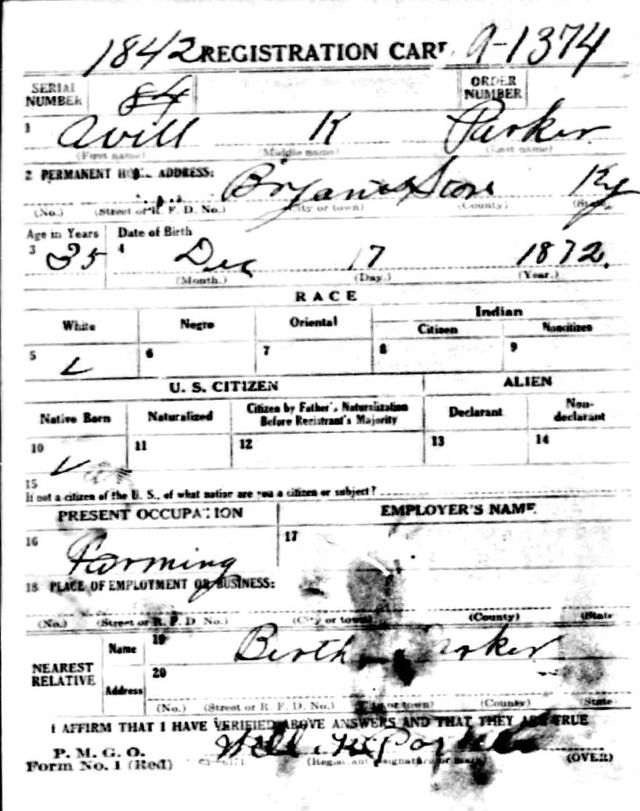 1842 REGISTRATION CARD 9-1374
SERIAL NUMBER 84 ORDER NUMBER
1 Will K Parker
(First name) (Middle name) (Last name)
2 PERMANENT HOME ADDRESS:
Bryants Store Ky
(No.) (Street or R. F. D. No.) (City or town) (County) (State)
Age in Years Date of Birth
3 35 4 Dec 17 1872
(Month.) (Day.) (Year.)
RACE
White Negro Oriental Indian
Citizen Noncitizen
5 ✓ 6 7 8 9
U. S. CITIZEN ALIEN
Native Born Naturalized Citizen by Father's Naturalization Before Registrant's Majority Declarant Non-declarant
10 ✓ 11 12 13 14
15
If not a citizen of the U. S., of what nation are you a citizen or subject?
PRESENT OCCUPATION EMPLOYER'S NAME
16 Farming 17
18 PLACE OF EMPLOYMENT OR BUSINESS:
(No.) (Street or R. F. D. No.) (City or town) (County) (State
NEAREST RELATIVE
Name 19 Bertha Parker
Address 20
(No.) (Street or R. F. D. No.) (City or town) (County) (State
I AFFIRM THAT I HAVE VERIFIED ABOVE ANSWERS AND THAT THEY ARE TRUE
P. M. G. O.
Form No. 1 (Red) Will K Parker
(Registrant's signature or mark) (OVER)